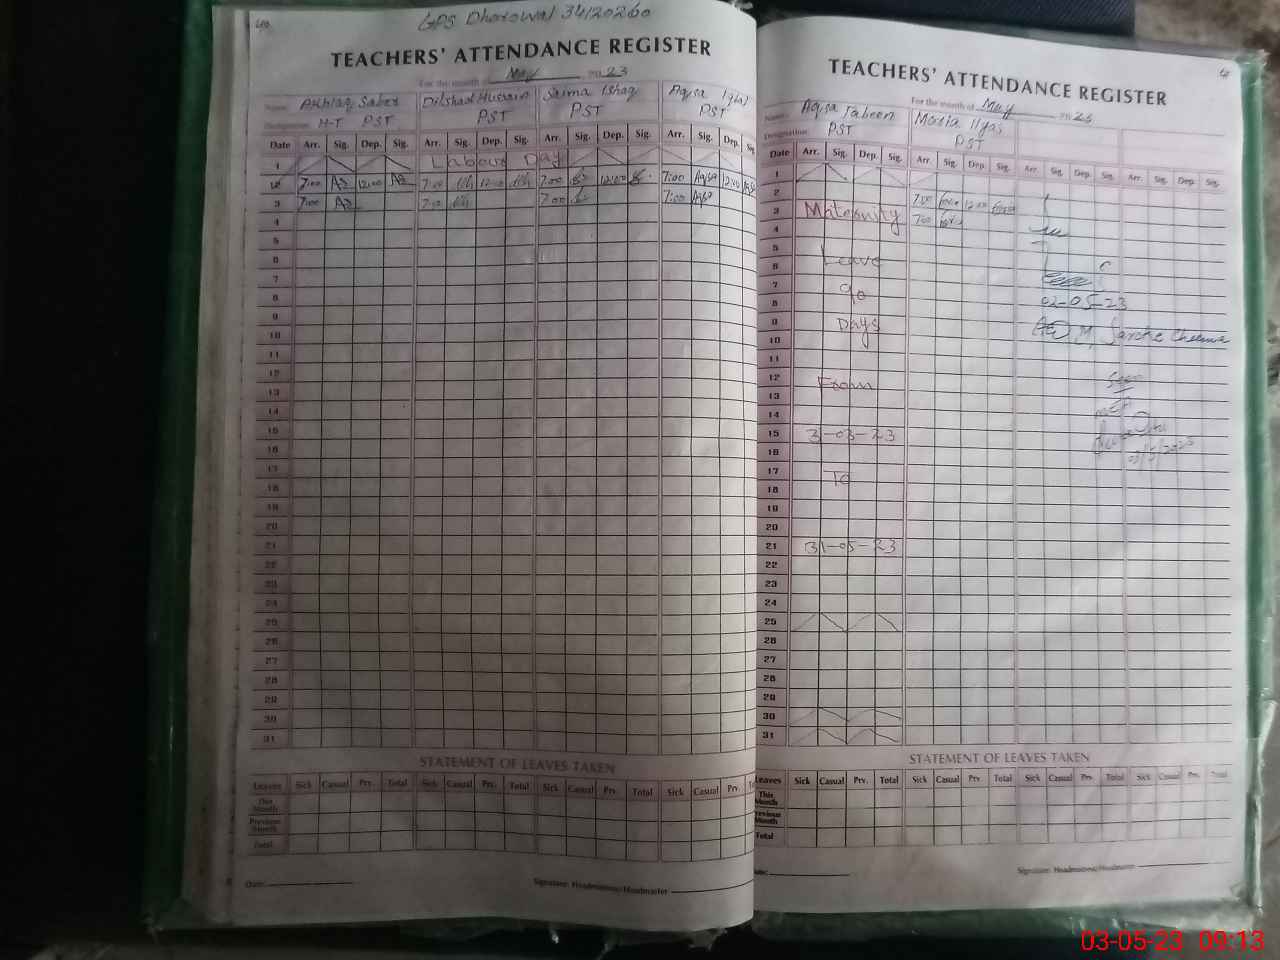 GPS Dharowal 34120260
TEACHERS' ATTENDANCE REGISTER
For the month of May 2023
Name: Akhlaq Saber Dilshad Hussain Saima Ishaq Aqsa Iqbal
Designation: H-T PST PST PST PST
Date Arr. Sig. Dep. Sig. Arr. Sig. Dep. Sig. Arr. Sig. Dep. Sig. Arr. Sig. Dep. Sig.
1 Labour Day
2 7:00 12:00 7:00 12:00 7:00 12:00 7:00 Aqsa 12:00 Aqsa
3 7:00 7:00 7:00 7:00 Aqsa
4
5
6
7
8
9
10
11
12
13
14
15
16
17
18
19
20
21
22
23
24
25
26
27
28
29
30
31
STATEMENT OF LEAVES TAKEN
Leaves Sick Casual Prv. Total Sick Casual Prv. Total Sick Casual Prv. Total Sick Casual Prv.
This Month
Previous Month
Total
Date:
Signature: Headmistress/Headmaster
TEACHERS' ATTENDANCE REGISTER
For the month of May 2023
Name: Aqsa Jabeen Maria Ilyas
Designation: PST PST
Date Arr. Sig. Dep. Sig. Arr. Sig. Dep. Sig. Arr. Sig. Dep. Sig. Arr. Sig. Dep. Sig.
1
2 7:00 12:00
3 Maternity 7:00
4
5
6 Leave
7
8 90 02-05-23
9 Days
10 AEO M.
11
12 From Seen
13
14
15 3-03-23
16 03/5/2023
17 To
18
19
20
21 31-05-23
22
23
24
25
26
27
28
29
30
31
STATEMENT OF LEAVES TAKEN
Leaves Sick Casual Prv. Total Sick Casual Prv. Total Sick Casual Prv. Total Sick Casual Prv. Total
This Month
Previous Month
Total
Date:
Signature: Headmistress/Headmaster
03-05-23 09:13